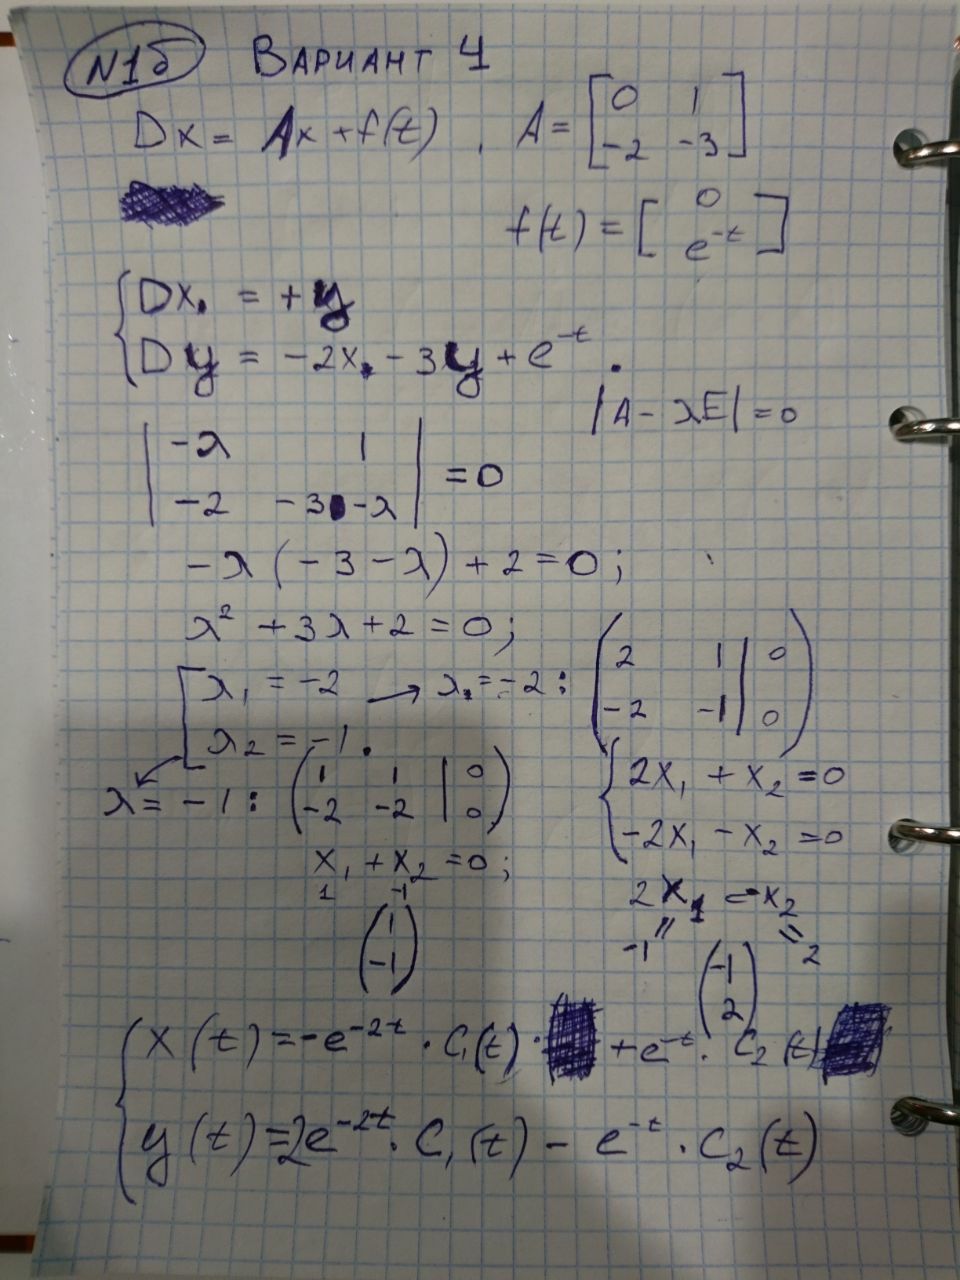 N1б Вариант 4
Dx = Ax + f(t) , A = [0 1; -2 -3]
f(t) = [0; e^{-t}]
{ Dx = +y
Dy = -2x - 3y + e^{-t} .
|A - λE| = 0
| -λ 1; -2 -3 -λ | = 0
-λ (-3 - λ) + 2 = 0 ;
λ² + 3λ + 2 = 0 ;
[ λ₁ = -2 → λ = -2 : (2 1 | 0; -2 -1 | 0)
λ₂ = -1 .
λ = -1 : (1 1 | 0; -2 -2 | 0)
{ 2x₁ + x₂ = 0
-2x₁ - x₂ = 0
x₁ + x₂ = 0 ;
1 -1
2x₁ = -x₂
-1 2
(1; -1)
(-1; 2)
{ x(t) = -e^{-2t} · C₁(t) · + e^{-t} · C₂(t)
y(t) = 2e^{-2t} · C₁(t) - e^{-t} · C₂(t)